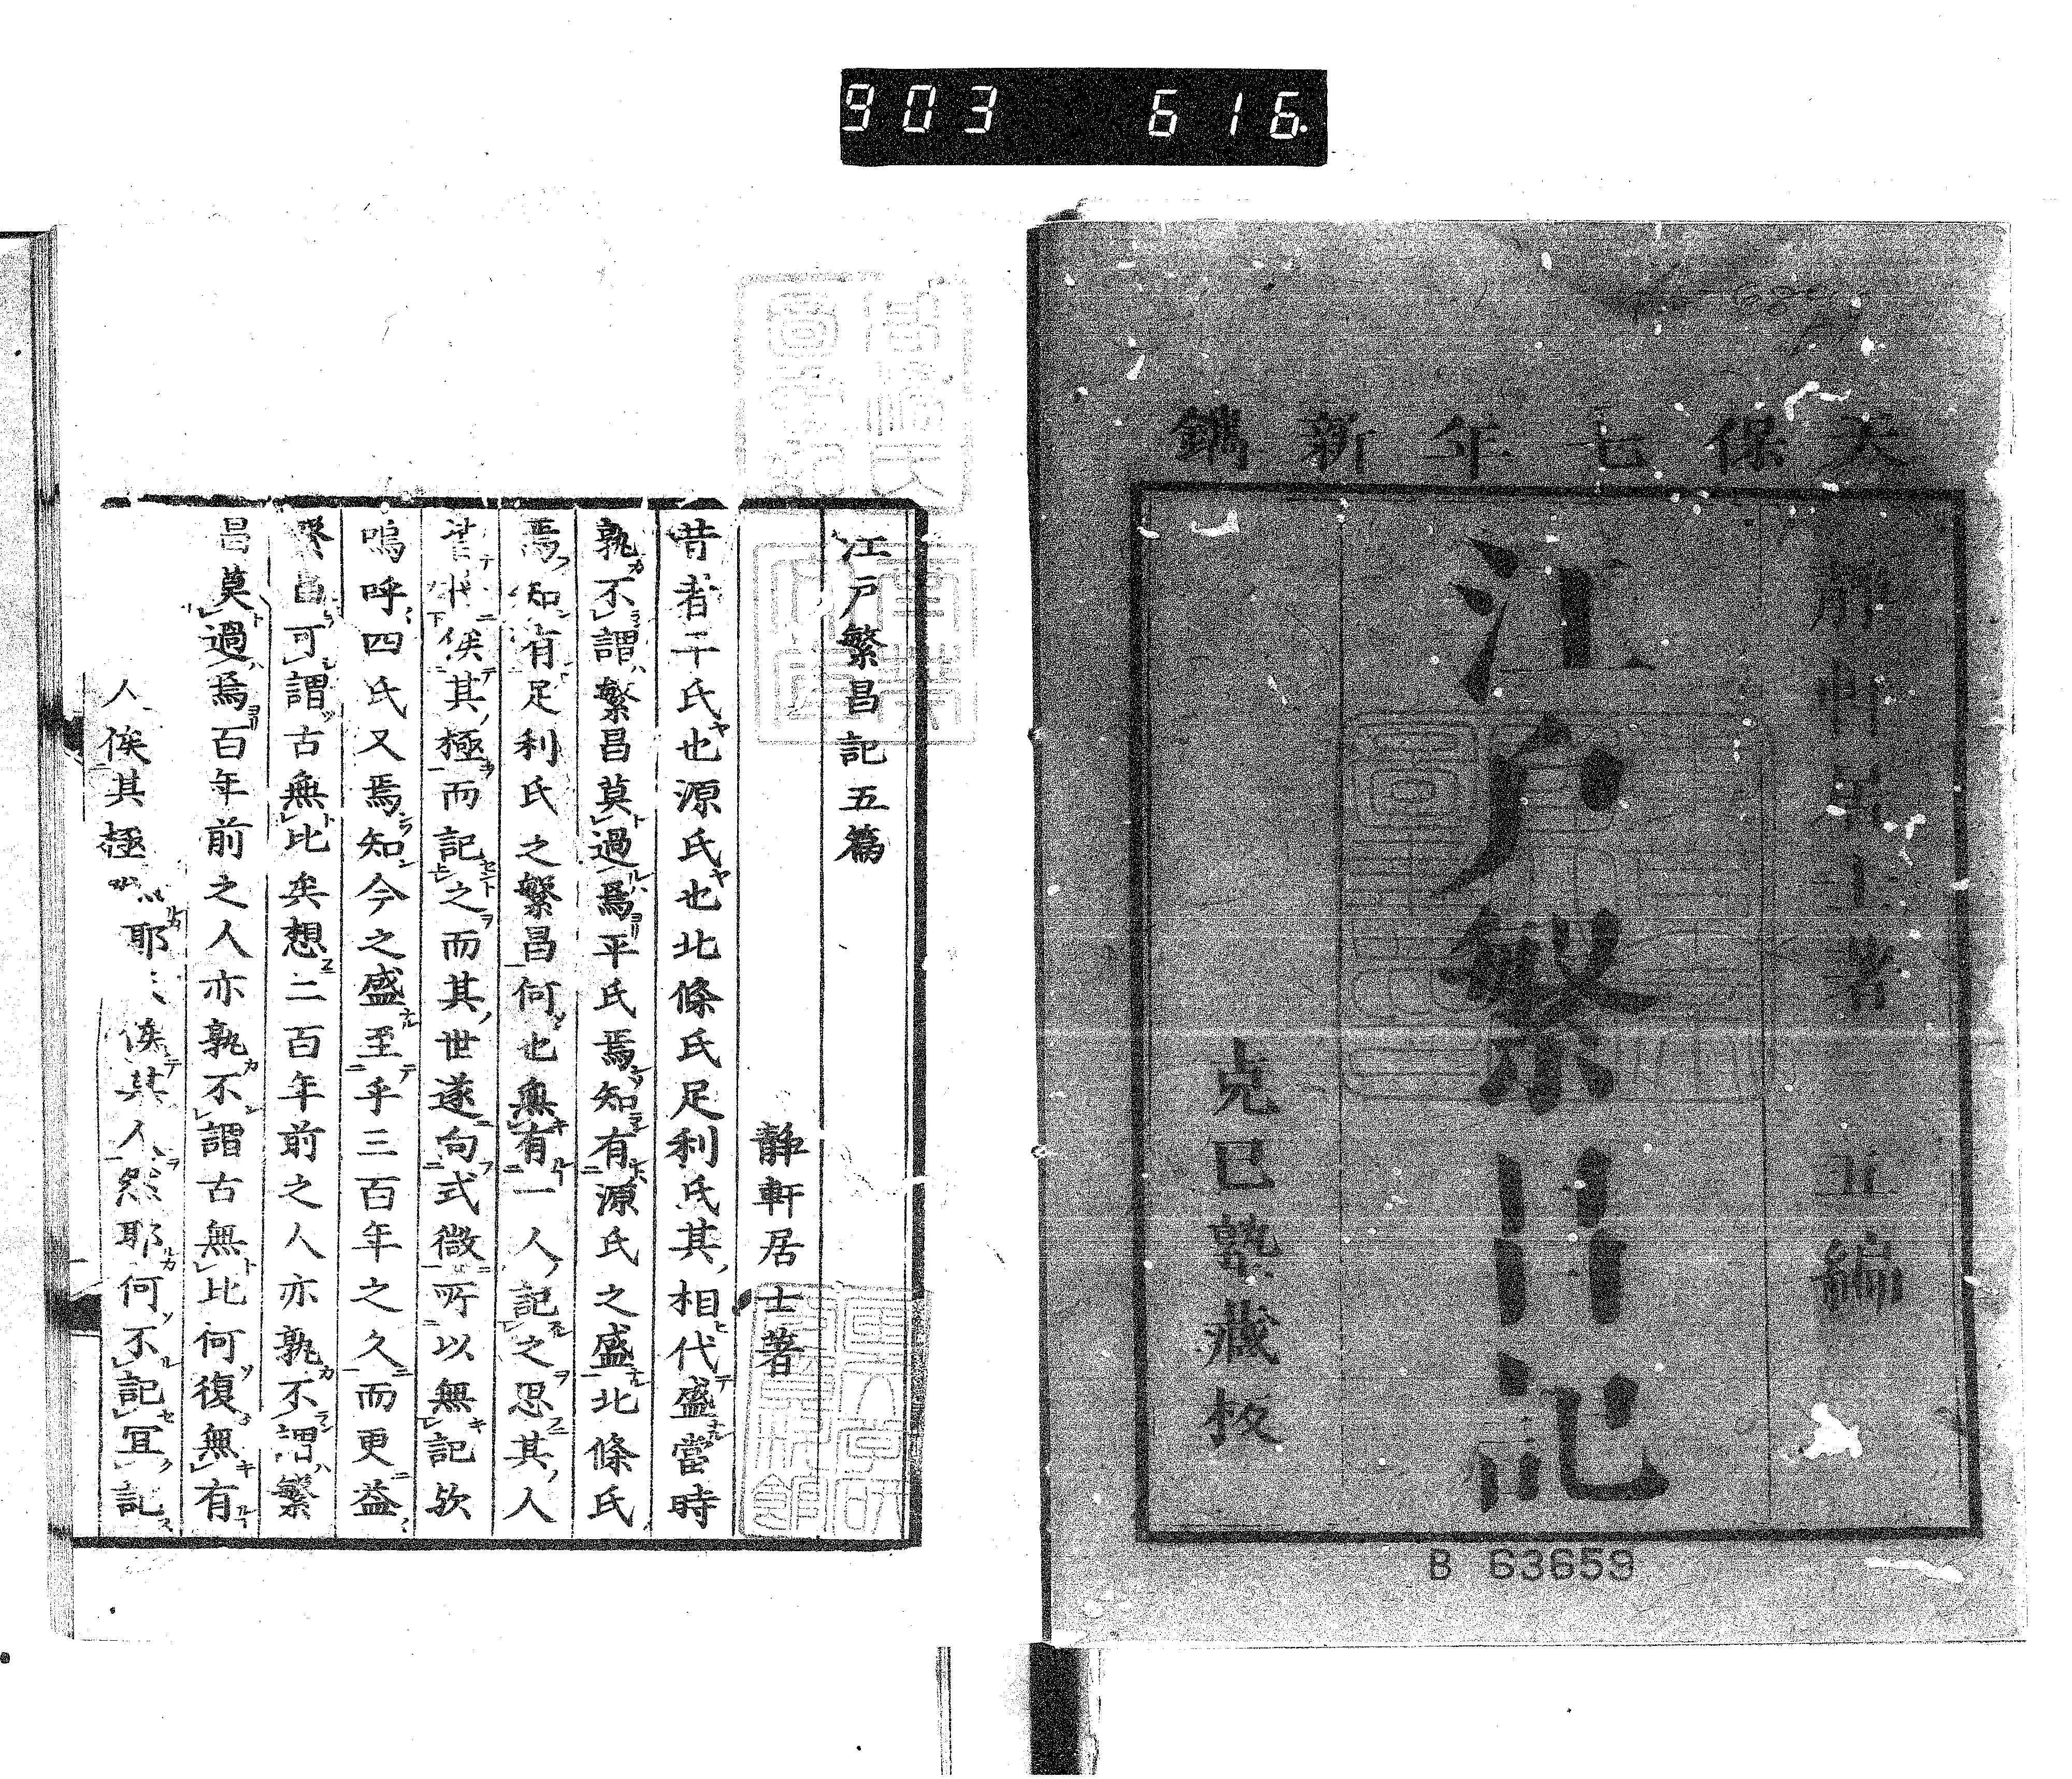 903 616.
天保七年新鐫
静軒居士著 五編
江戸繁昌記
克己塾藏板
B 63659
江戸繁昌記五篇
靜軒居士著
昔者平氏也源氏也北條氏足利氏其相代盛當時
孰不謂繁昌莫過焉平氏焉知有源氏之盛北條氏
焉知有足利氏之繁昌何也無有一人記之忍其人
俟其極而記之而其世遂向式微所以無記欤
嗚呼四氏又焉知今之盛至乎三百年之久而更益
繁昌可謂古無比矣想二百年前之人亦孰不謂繁
昌莫過焉百年前之人亦孰不謂古無比何復無有
人俟其極 耶 俟其人然耶何不記冝記